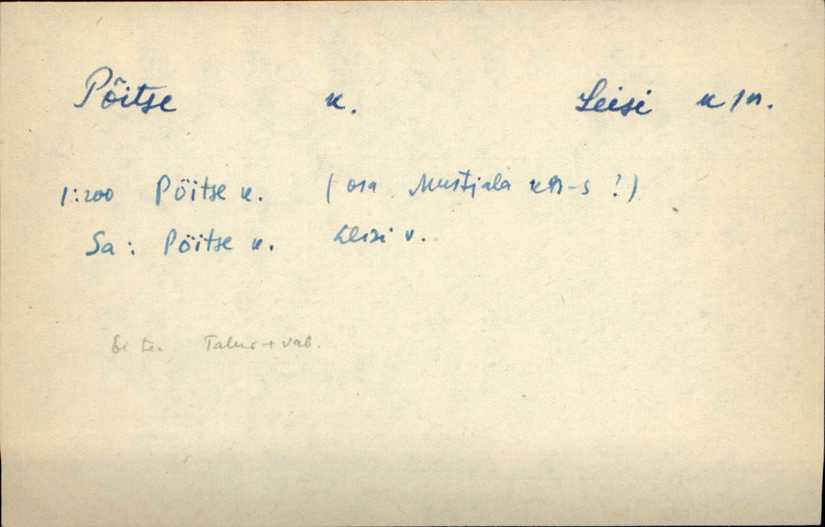 Põitse k. Leisi k/n.
1:200 Pöitse k. (osa Mustjala k/n-s !)
Sa: Pöitse k. Leisi v.
Talur + vab.